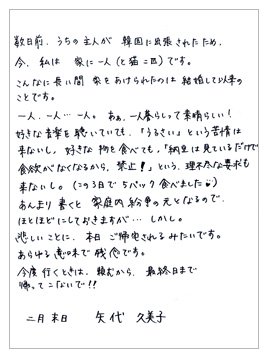 数日前、うちの主人が 韓国に出張されたため、
今、私は 家に一人(と猫二匹)です。
こんなに長い間 家をあけられたのは 結婚して以来の
ことです。
一人、一人…一人。 あぁ、一人暮らしって素晴らしい!
好きな音楽を聴いていても、「うるさい」という苦情は
来ないし、好きな物を食べても、「納豆は見ているだけで
食欲がなくなるから、禁止!」という、理不尽な要求も
来ないし。(この3日で5パック食べました)
あんまり書くと 家庭内紛争の元となるので、
ほとほどにしておきますが… しかし。
悲しいことに、本日 ご帰宅されるみたいです。
あらゆる意味で 残念です。
今度行くときは、頼むから、最終日まで
帰ってこないで!!
二月末日 矢代 久美子